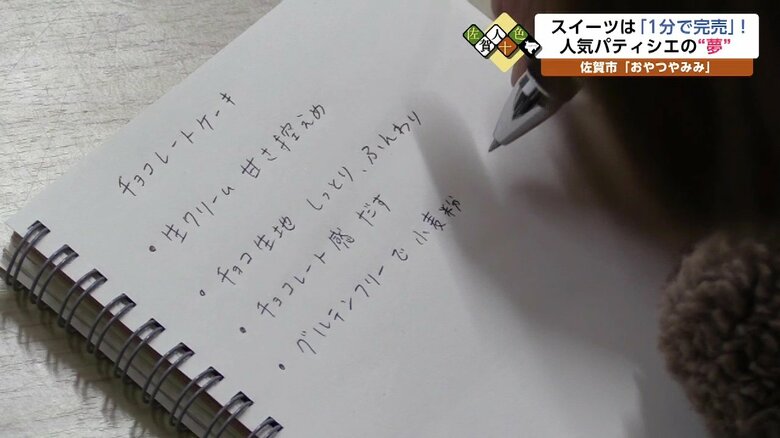 佐賀人十色
スイーツは「1分で完売」!
人気パティシエの“夢”
佐賀市「おやつやみみ」
チョコレートケーキ
・生クリーム 甘さ控えめ
・チョコ生地 しっとり、ふんわり
・チョコレート感 だす
・グルテンフリーで 小麦粉